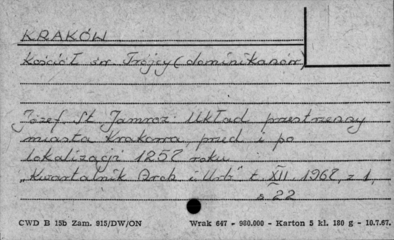 KRAKÓW
Kościół św. Trójcy (dominikanów)
Józef St. Jamroz: Układ przestrzenny
miasta Krakowa, przed i po
lokalizacji 1257 roku
"Kwartalnik Arch. i Urb" t. XII 1967, z 1,
s 22
CWD B 15b Zam. 915/DW/ON Wrak 647 - 980.000 - Karton 5 kl. 180 g - 10.7.67.